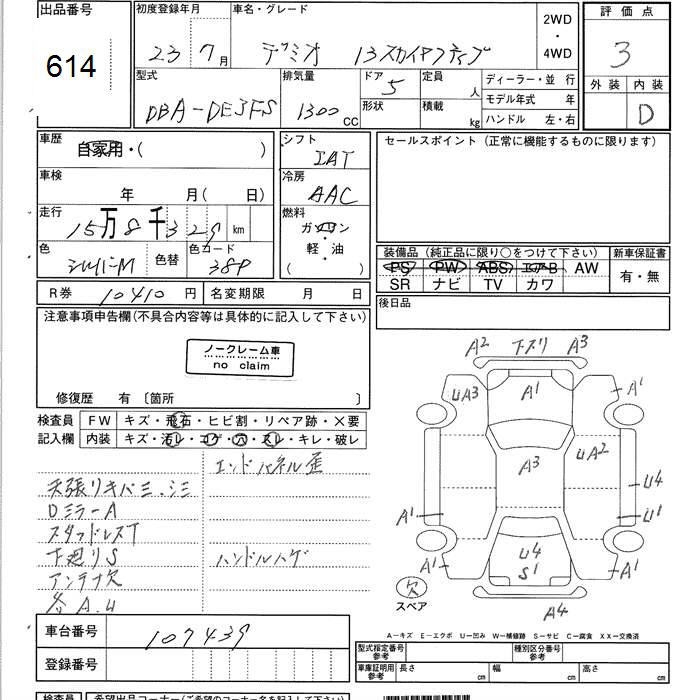 出品番号
614
初度登録年月
23 7月
車名・グレード
デミオ 13スカイアクティブ
2WD
・
4WD
評価点
3
型式
DBA-DE3FS
排気量
1300 CC
ドア
5
形状
定員
人
積載
kg
ディーラー・並 行
モデル年式 年
ハンドル 左・右
外装 内装
D
車歴
自家用・( )
車検
年 月( 日)
走行
15万8千329 km
色
シルバーM
色替
色コード
38P
シフト
IAT
冷房
AAC
燃料
ガソリン
軽・油
( )
セールスポイント(正常に機能するものに限ります)
装備品(純正品に限り○をつけて下さい)
PS PW ABS エアB AW
SR ナビ TV カワ
新車保証書
有・無
後日品
R券 10410 円 名変期限 月 日
注意事項申告欄(不具合内容等は具体的に記入して下さい)
ノークレーム車
no claim
修復歴 有 〔箇所 〕
検査員
記入欄
FW キズ・飛石・ヒビ割・リペア跡・×要
内装 キズ・汚レ・コゲ・穴・スレ・キレ・破レ
エンドパネル歪
天張リキバミ.シミ
DミラーA
スタッドレスT
下廻りS
ハンドルハゲ
アンテナ欠
各A.U
A2 下スリ A3
A1
UA3
A1
A3
UA2
U4
A1
U1
U4
S1
A1
A1
A4
欠
スペア
A―キズ E―エクボ U―凹み W―補修跡 S―サビ C―腐食 XX―交換済
車台番号
107439
登録番号
型式指定番号
参考
種別区分番号
参考
車庫証明用
参考
長さ cm 幅 cm 高さ cm
検査員 希望出品コーナー(ご希望のコーナー名を記入して下さい)